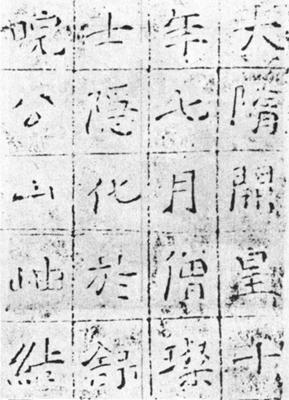 大隋開皇十
年七月僧璨
士隱化於舒
皖公山岫結